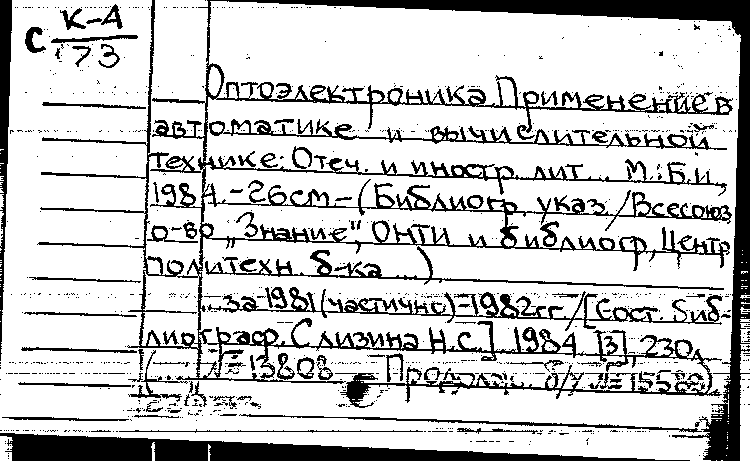 К-А
С 173
Оптоэлектроника. Применение в
автоматике и вычислительной
технике: Отеч. и иностр. лит... М.: Б.и.,
1984. - 26см - (Библиогр. указ. / Всесоюз
о-во „Знание", ОНТИ и библиогр, Центр
политехн. б-ка ...)
...за 1981 (частично) - 1982гг / [Сост. биб-
лиограф. Слизина Н.С.] 1984. [3], 230л
(... № 13808 Продолж. б/у № 15580)